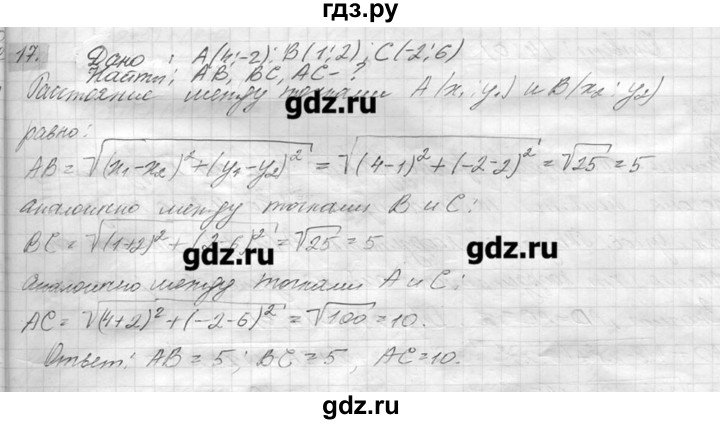 гдз.ру
17. Дано: A(4;-2); B(1;2); C(-2;6)
Найти: AB, BC, AC-?
Расстояние между точками A(x₁;y₁) и B(x₂;y₂)
gdz.ru
равно:
AB=√((x₁-x₂)²+(y₁-y₂)²)=√((4-1)²+(-2-2)²)=√25=5
аналогично между точками B и C:
BC=√((1+2)²+(2-6)²)=√25=5
gdz.ru gdz.ru
аналогично между точками A и C:
AC=√((4+2)²+(-2-6)²)=√100=10.
Ответ: AB=5; BC=5, AC=10.
gdz.ru